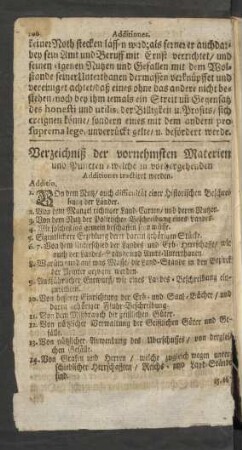 106 Additiones.
seiner Noth stecken lassen wird; als ferner er auch darbey
sein Amt und Beruff mit Ernst verrichtet, und
seinen eigenen Nutzen und Gefallen mit dem Wolstande
seiner Unterthanen dermossen verknüpffet und
vereiniget achtet, daß eines ohne das andere nicht bestehen
noch bey ihm jemals ein Streit uñ Gegensatz
des honesti und utilis, der Billigkeit u. Profits, sich
ereignen könne, sondern eines mit dem andern pro
suprema lege, unverrückt gelte, u. befördert werde.
Verzeichniß der vornehmsten Materien
und Puncten, welche in vorhergehenden
Additionen tractiret werden.
Additio.
1. Von dem Nutz, auch difficultät einer Historischen Beschreibung
der Länder.
2. Von dem Mangel richtiger Land-Carten, und deren Nutzen.
3. Von dem Nutz der Politischen Beschreibung eines Landes.
4. Wie solche ins gemein beschaffen seyn müsse.
5. Eigentlichere Erzehlung derer darein gehörigen Stücke.
6. 7. Von dem Unterschied der Landes- und Erb-Herrschafft, wie
auch der Landes-Stände und Amts-Unterthanen.
8. Warum und auf was Masse, die Land-Stände in den Bezirck
der Aemter gezogen werden.
9. Ausführlicher Entwurff, wie eines Landes-Beschreibung einzurichten.
10. Von besserer Einrichtung der Erb- und Saal-Bücher, und
darin gehöriger Fluhr-Beschreibung.
11. Von dem Mißbrauch der geistlichen Güter.
12. Von nützlicher Verwaltung der Geistlichen Güter und Gefälle.
13. Von nützlicher Anwendung des Uberschusses, von dergleichen
Gefälle.
14. Von Grafen und Herren, welche zugleich wegen unterschiedlicher
Herrschafften, Reichs- und Land-Stände
sind.